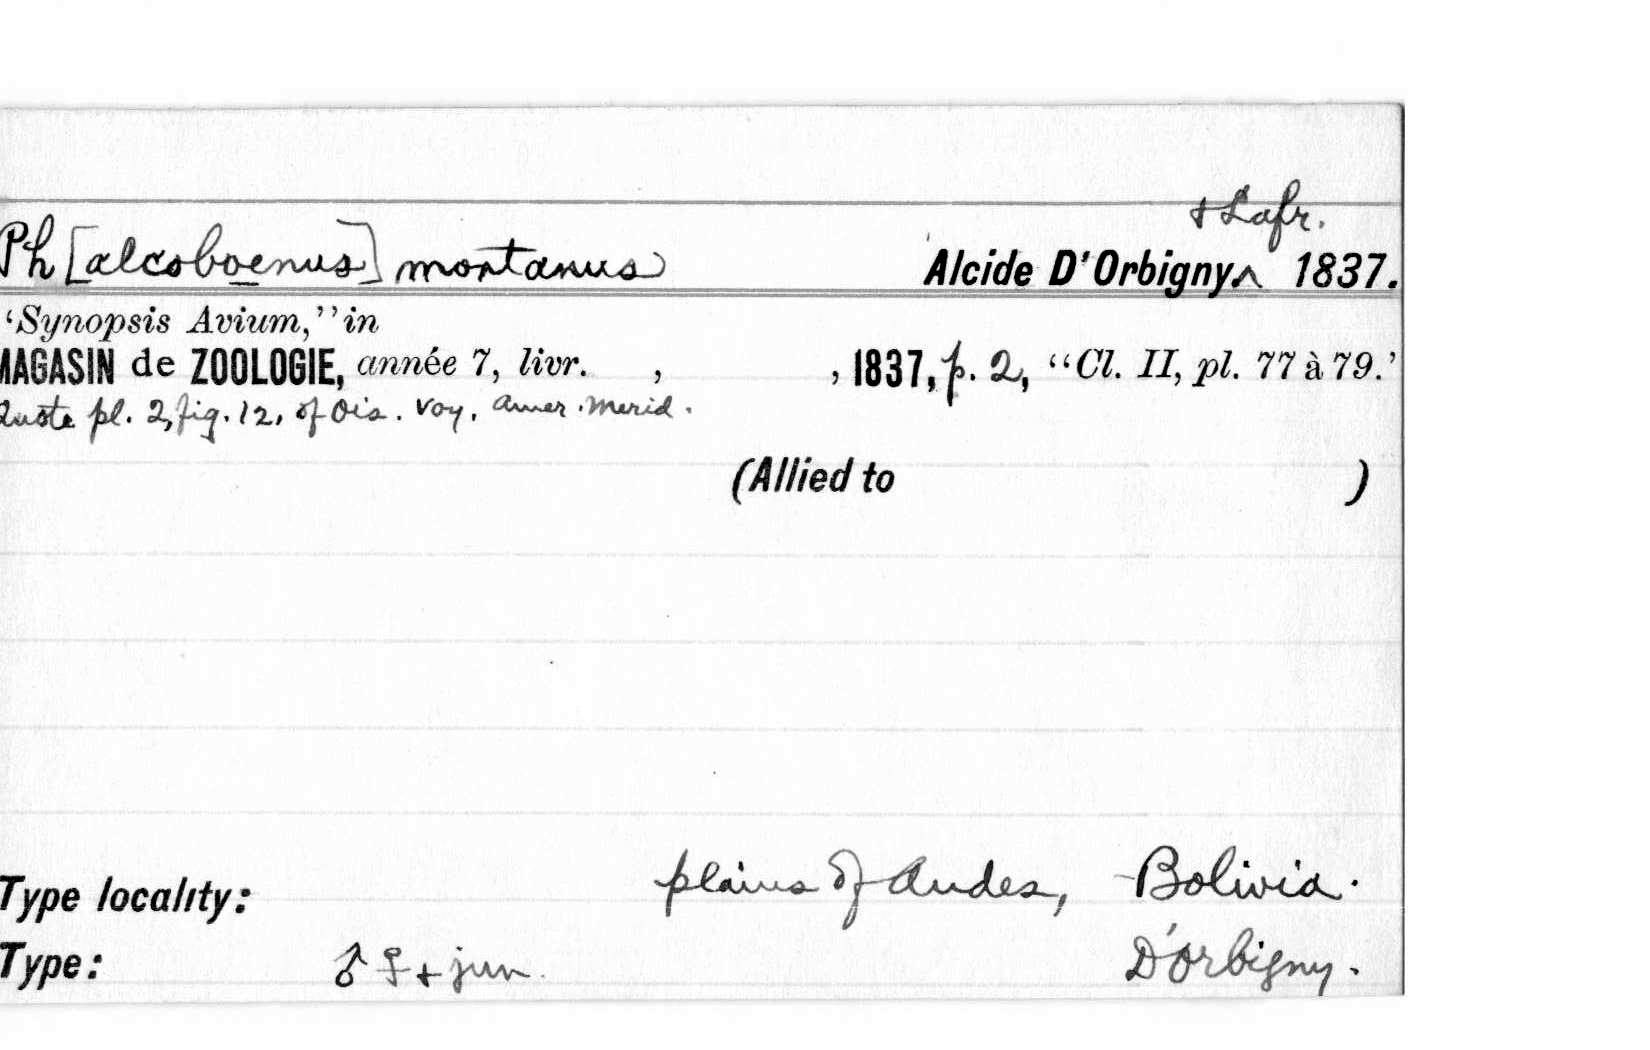 & Lafr.
Ph [alcoboenus] montanus Alcide D'Orbigny ^ 1837.
‘Synopsis Avium,’’ in
MAGASIN de ZOOLOGIE, année 7, livr. , , 1837, p. 2, “Cl. II, pl. 77 à 79.’
Quote pl. 2, fig. 12, of Ois. Voy. Amer. Merid.
(Allied to )
Type locality: plains of Andes, Bolivia.
Type: ♂ ♀ + juv. D'Orbigny.